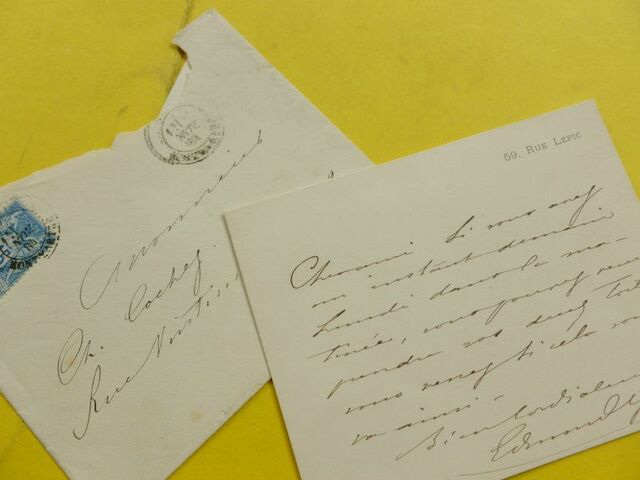 Monsieur
Ch. Cochez
Rue
59, RUE LEPIC
Cher ami Si vous avez
un instant demain
Lundi dans la ma-
tinée, vous pouvez venir
prendre vos deux toiles
vous venez si cela vous
va ainsi -
Bien Cordialem
Edmond